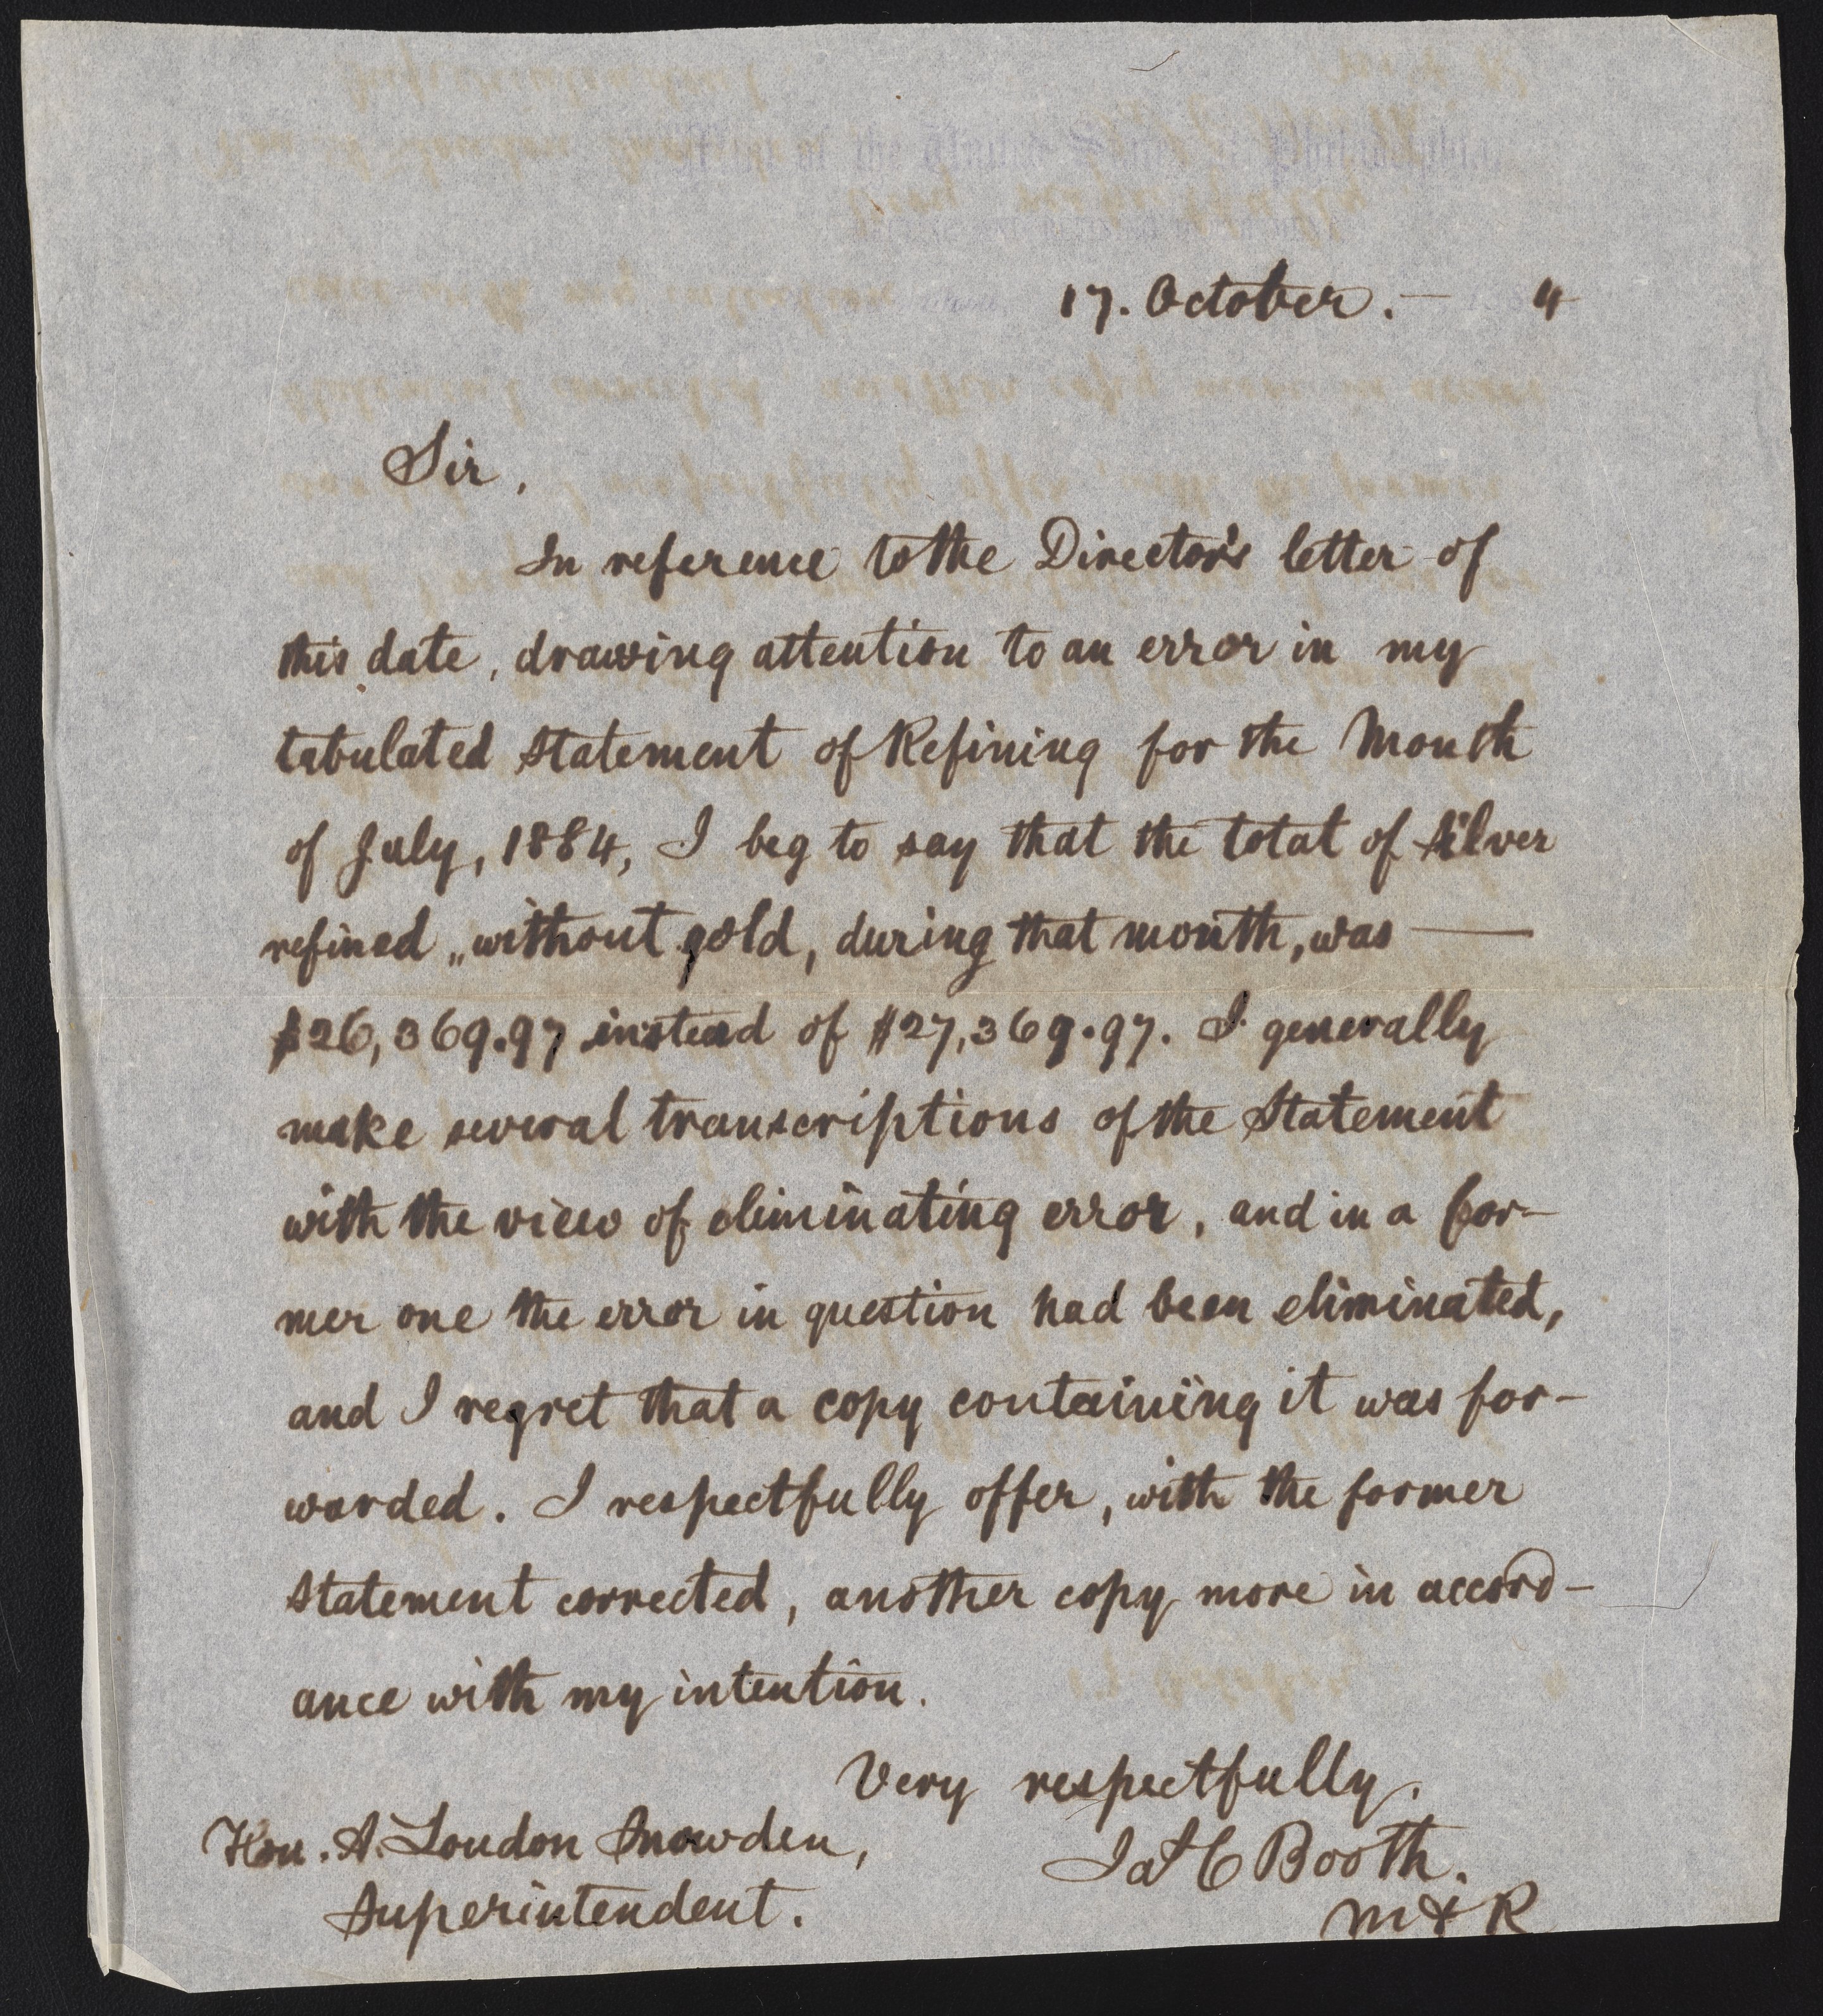 17. October. — 4
Sir,
In reference to the Director's letter of
this date, drawing attention to an error in my
tabulated statement of Refining for the Month
of July, 1884, I beg to say that the total of Silver
refined „without gold, during that month, was —
$26,369.97 instead of $27,369.97. I generally
make several transcriptions of the Statement
with the view of eliminating error, and in a for-
mer one the error in question had been eliminated,
and I regret that a copy containing it was for-
warded. I respectfully offer, with the former
statement corrected, another copy more in accord-
ance with my intention.
Very respectfully.
Hon. A. Loudon Snowden,
Jas C Booth.
Superintendent.
M & R